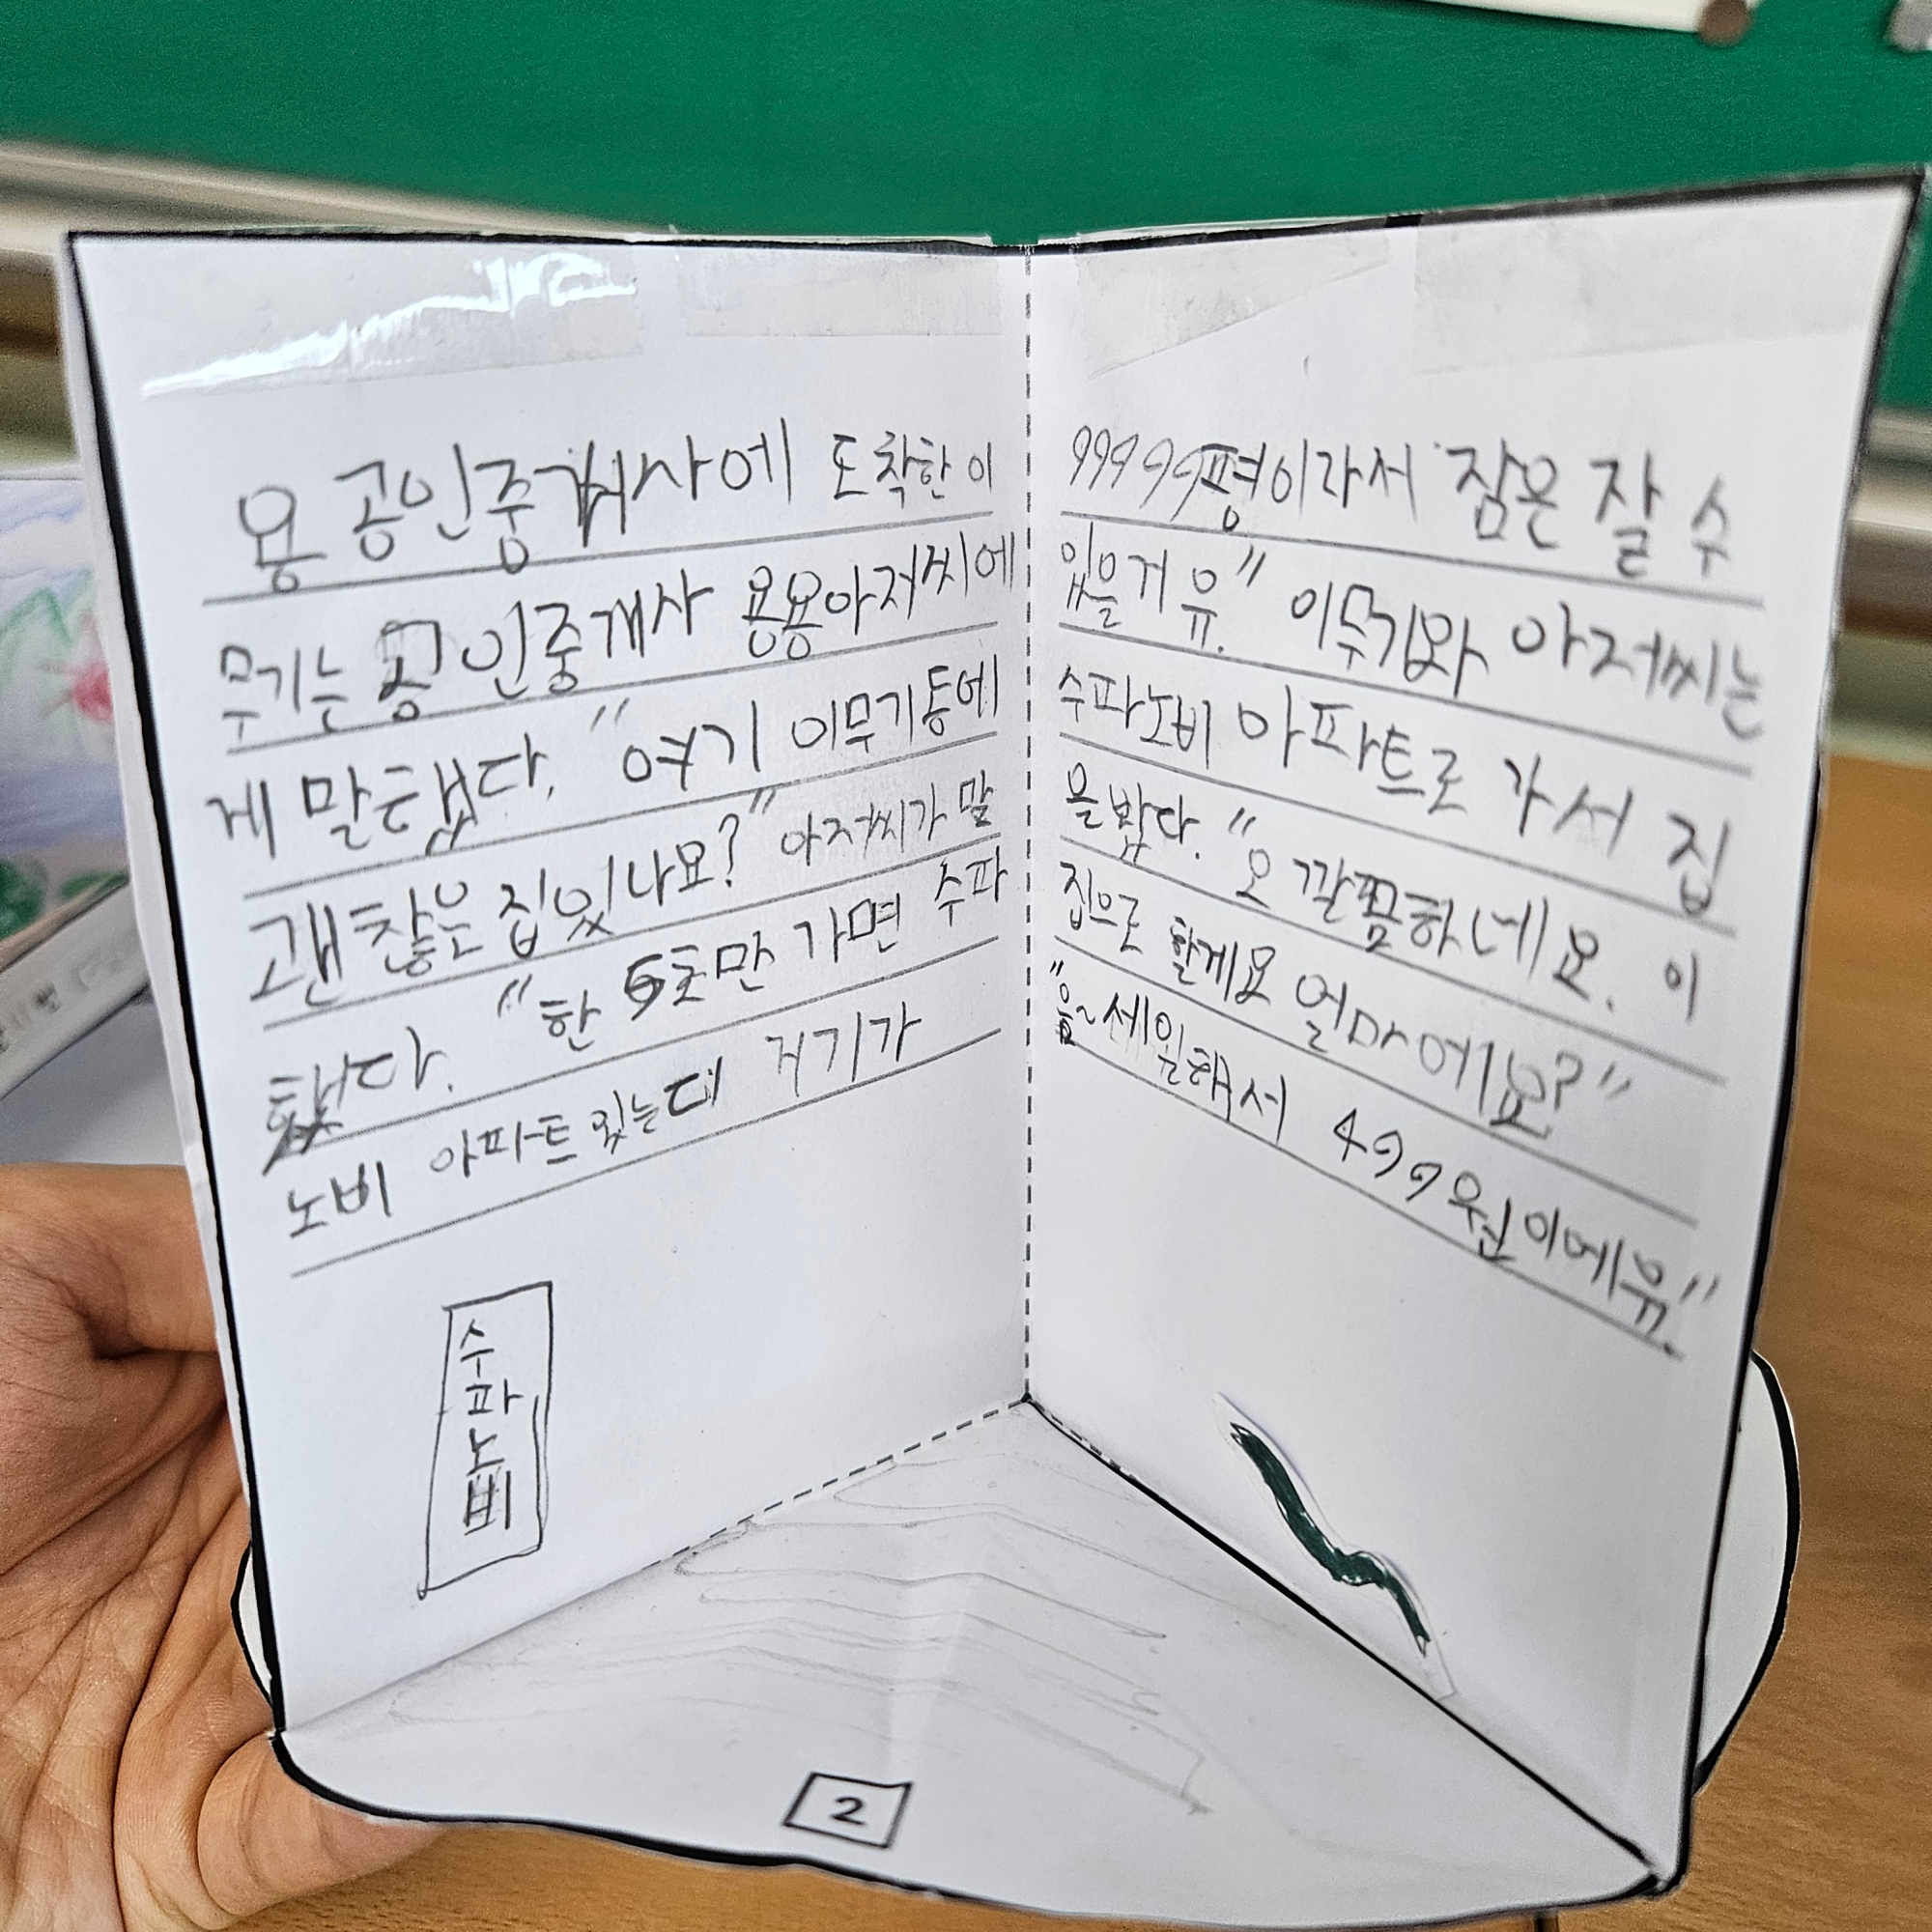 용 공인중개사에 도착한 이
무기는 공인중개사 용용아저씨에
게 말했다. "여기 이무기동에
괜찮은 집있나요?" 아저씨가 말
했다. "한 5초만 가면 수파
노비 아파트있는데 거기가
수파노비
99999평이라서 잠은 잘 수
있을거유." 이무기와 아저씨는
수파노비 아파트로 가서 집
을 봤다. "오 깔끔하네요. 이
집으로 할게요 얼마에요?"
"음~세일해서 499원이에유."
2